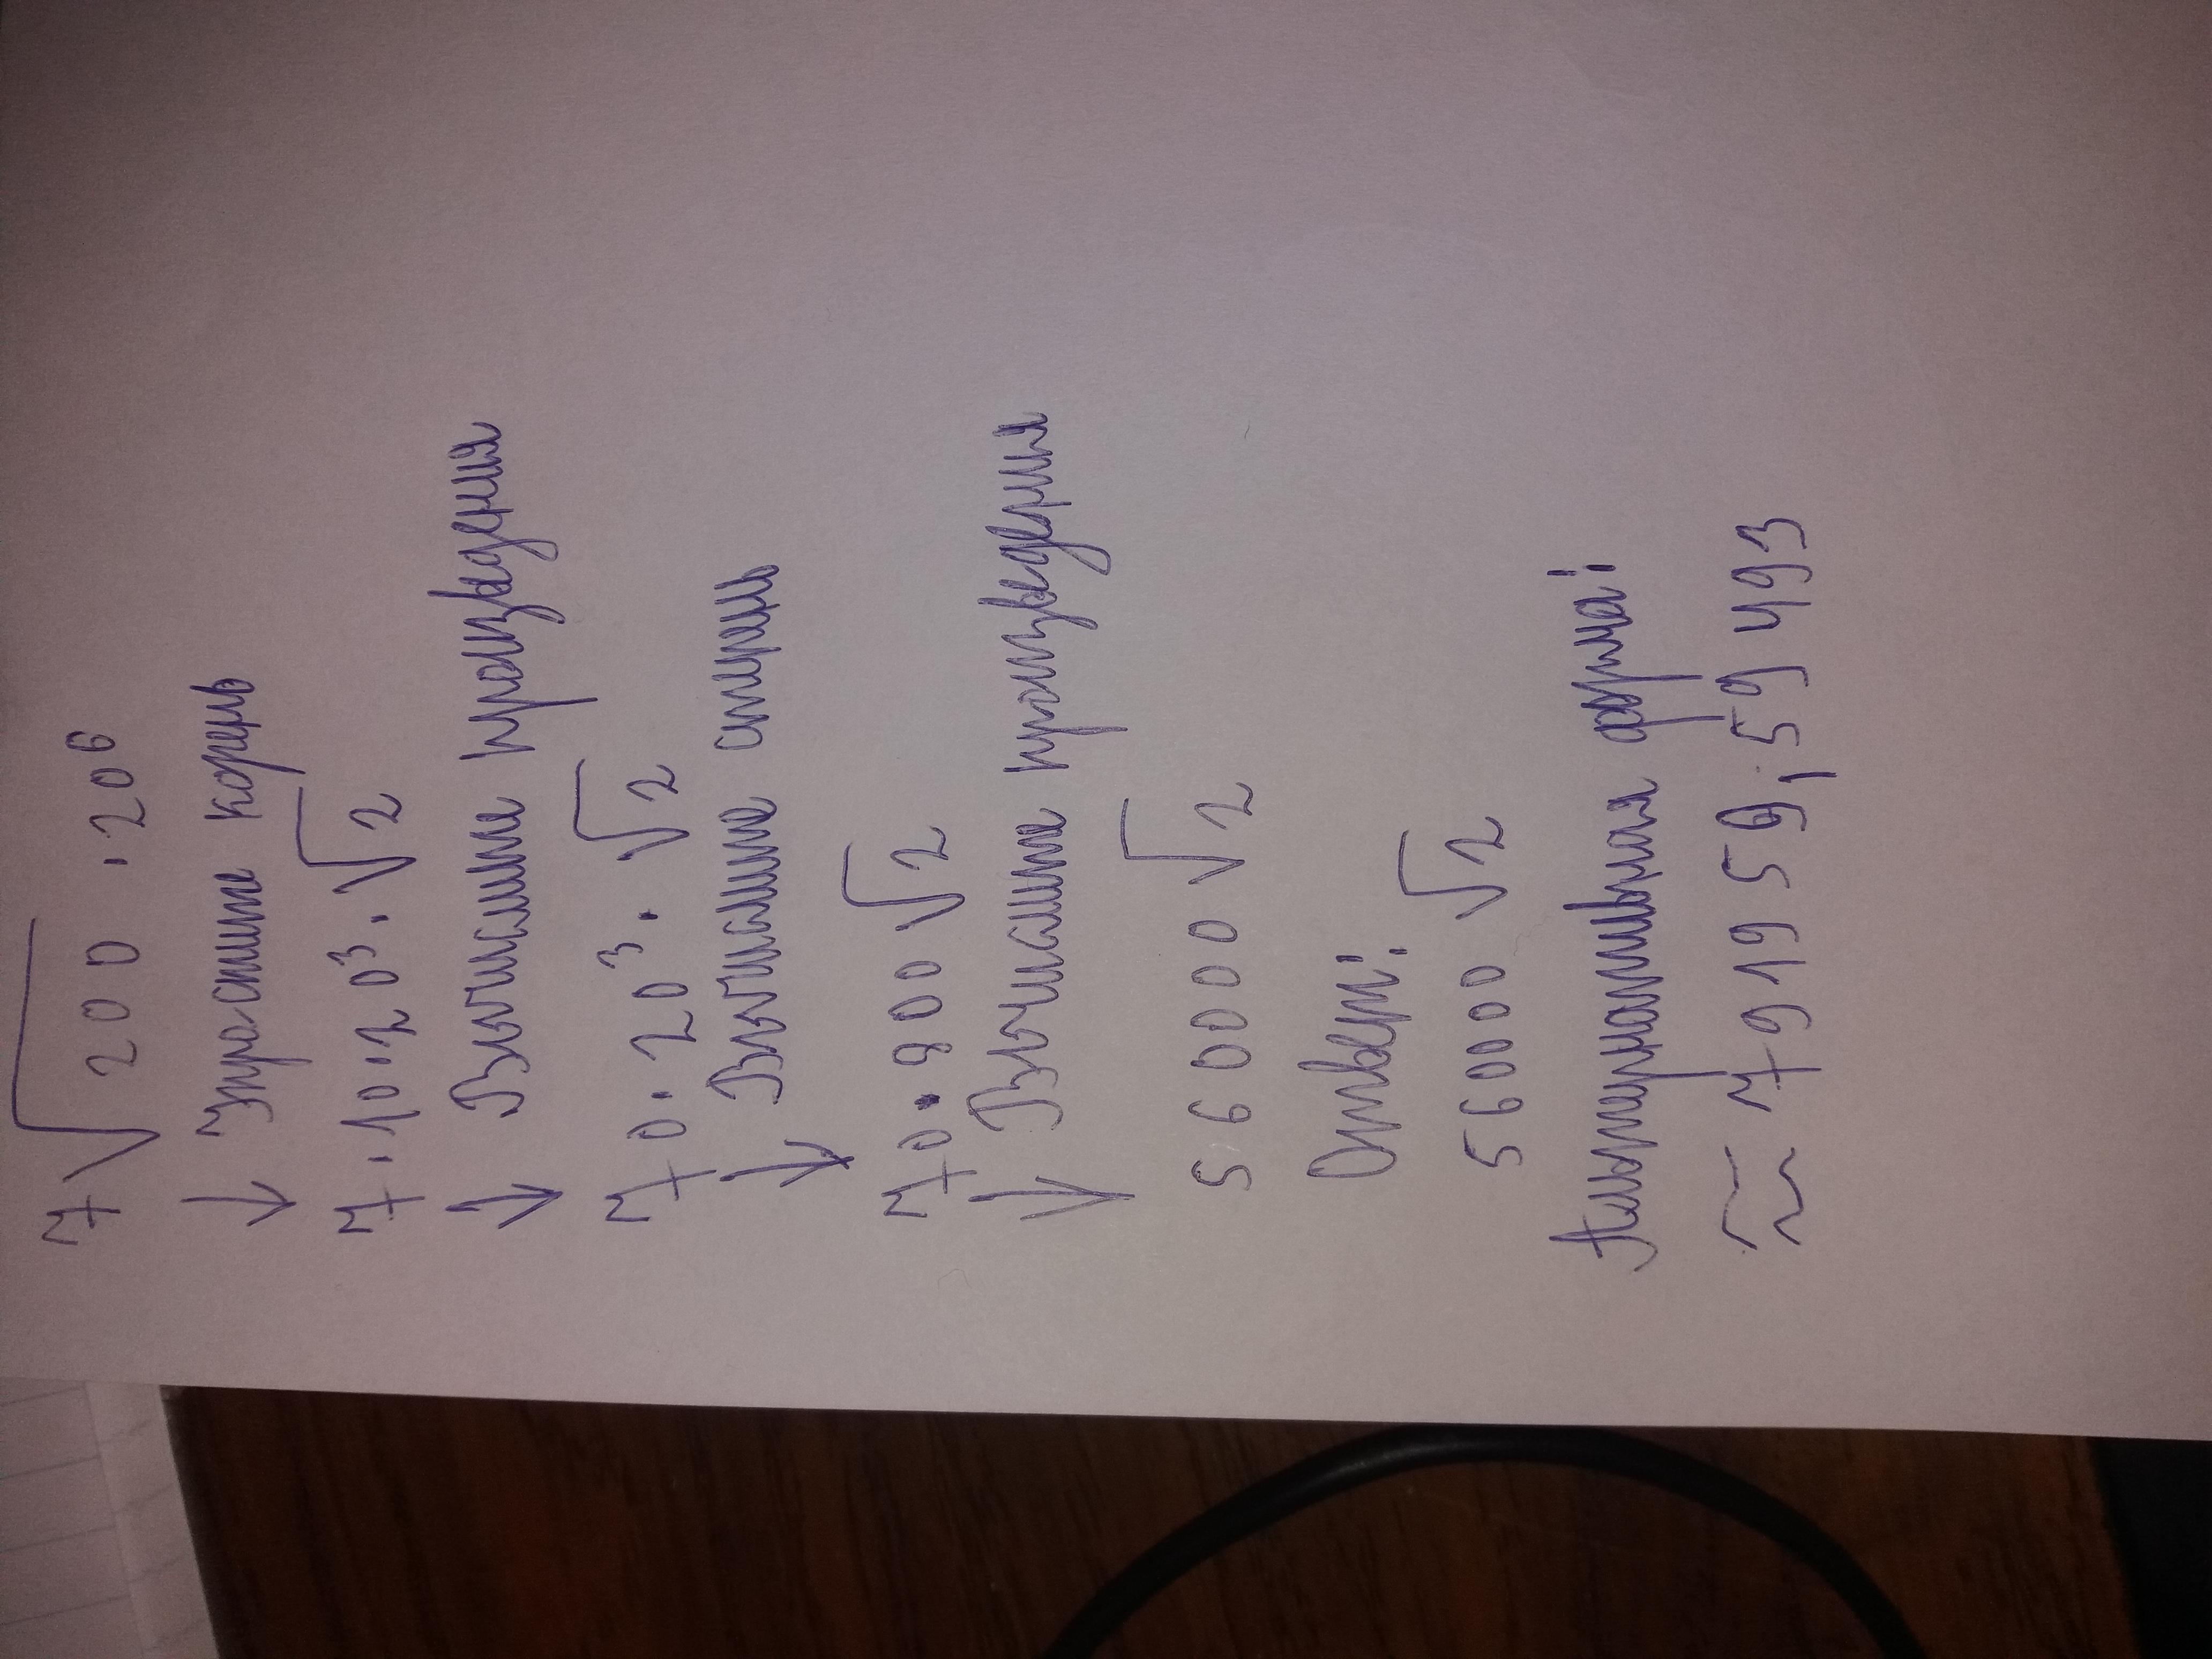 7√200 · 20⁶
↓ Упростите корень
7 · 10 · 20³ · √2
↓ Вычислите произведения
70 · 20³ · √2
↓ Вычислите степень
70 · 800 √2
↓ Вычислите произведения
560000 √2
Ответ:
560000 √2
Альтернативная форма:
≈ 791959,59493